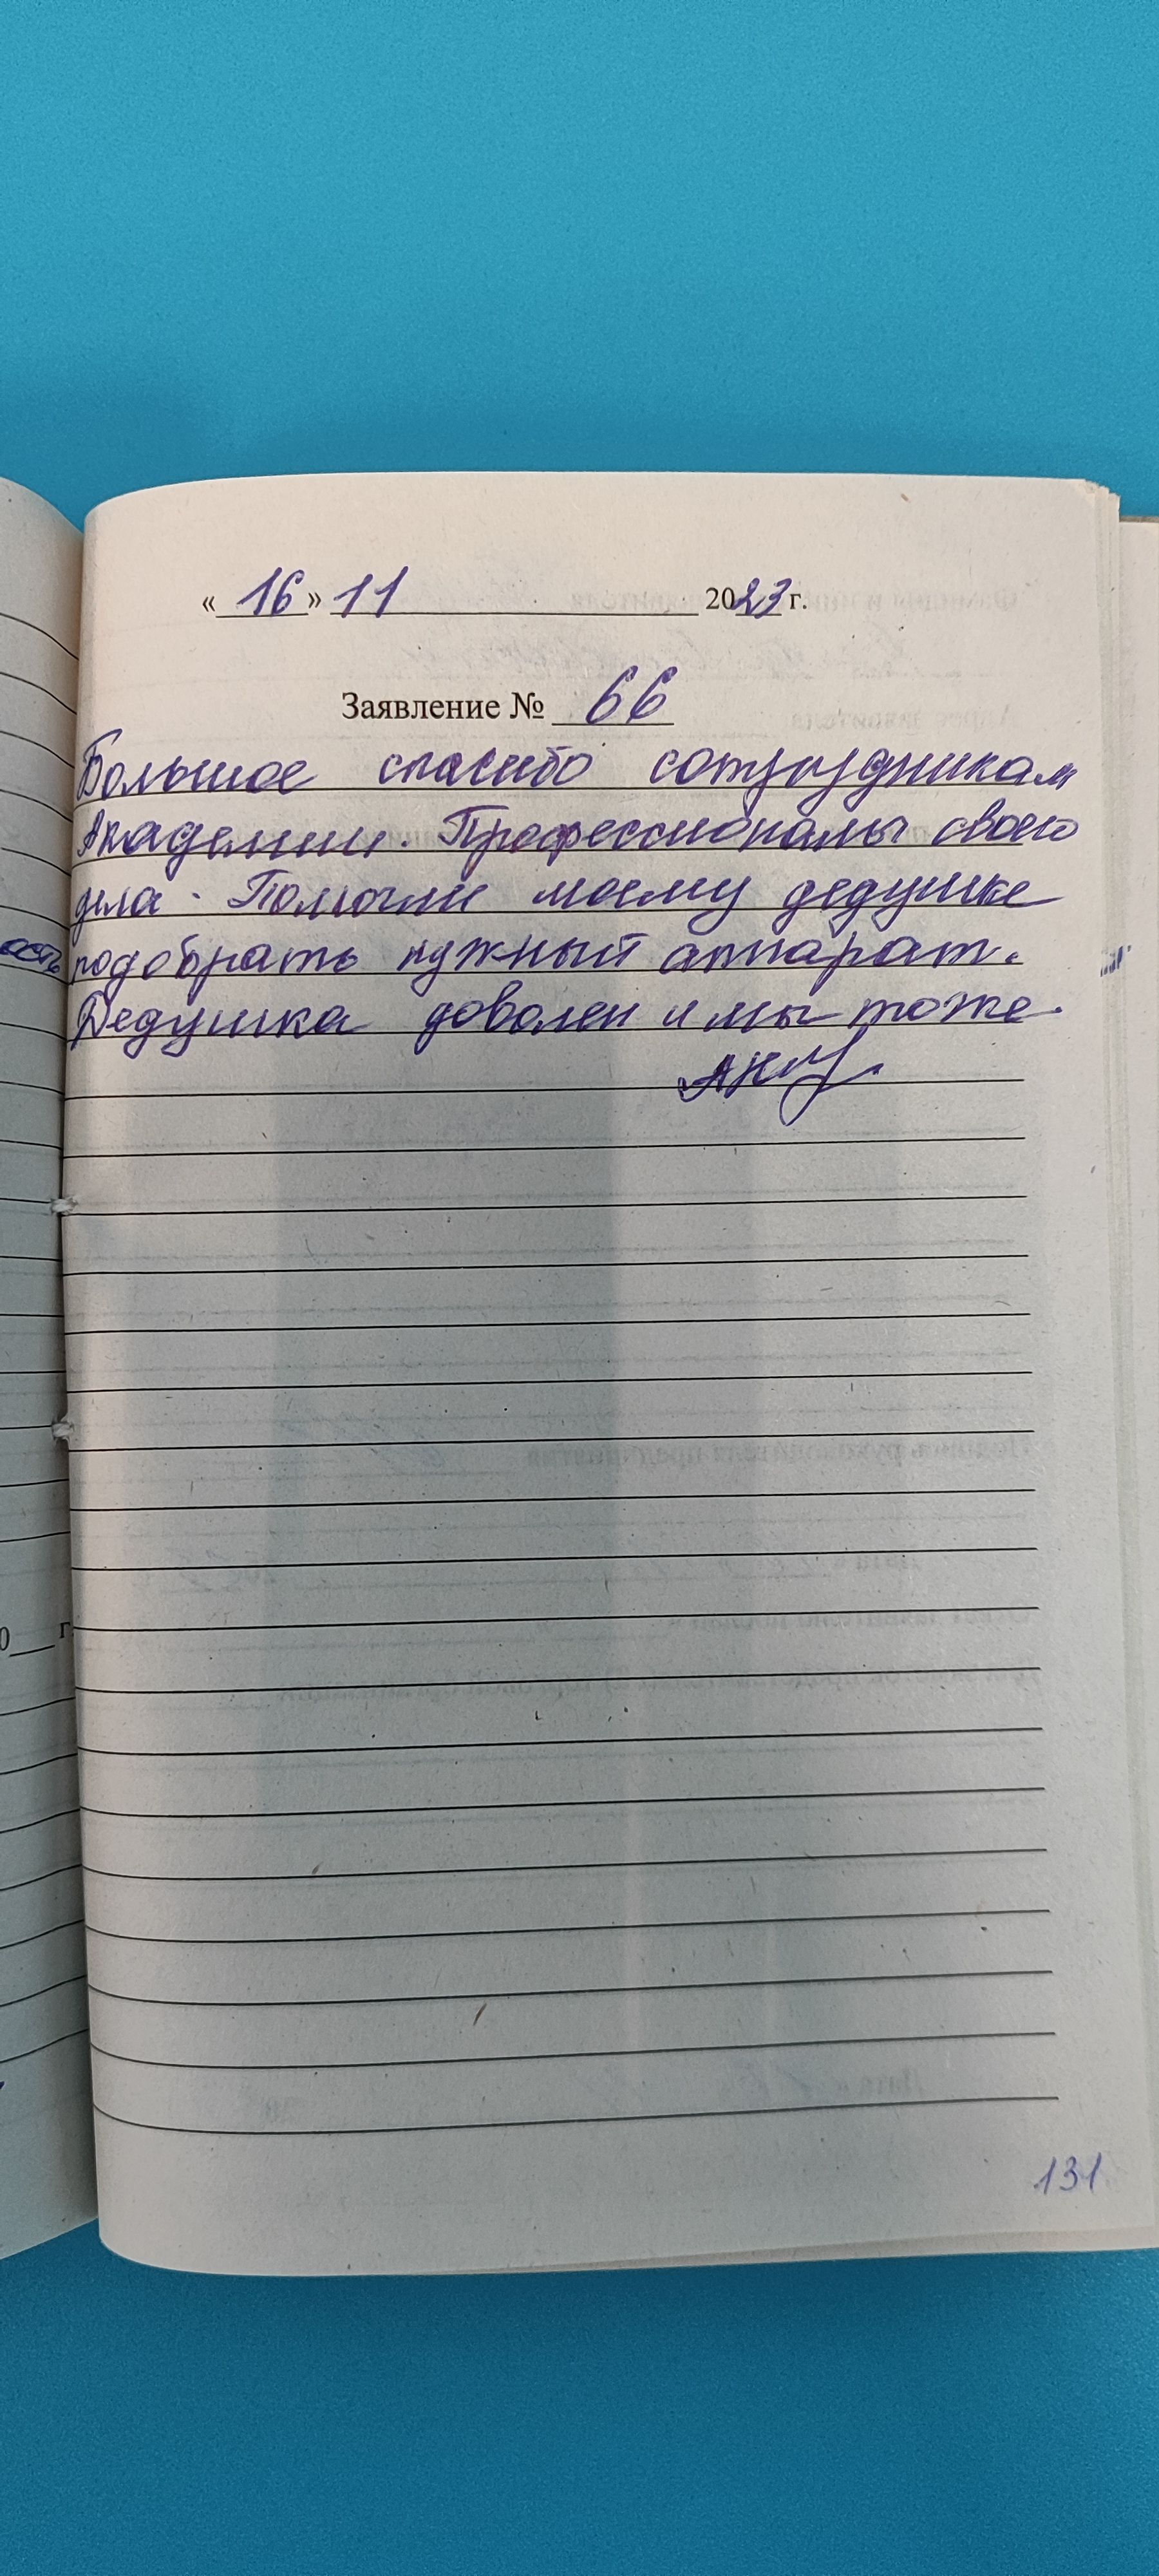 « 16 » 11 2023 г.
Заявление № 66
Большое спасибо сотрудникам
Академии. Профессионалы своего
дела. Помогли моему дедушке
подобрать нужный аппарат.
Дедушка доволен и мы тоже.
131